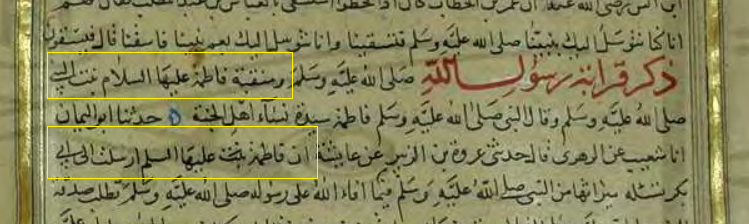 ابى انس رضى الله عنه ان عمر بن الخطاب كان اذا قحطوا استسقى بالعباس بن عبد المطلب فقال اللهم
انا كنا نتوسل اليك بنبينا صلى الله عليه وسلم فتسقينا وانا نتوسل اليك بعم نبينا فاسقنا قال فيسقون
ذكر قرابة رسول الله صلى الله عليه وسلم ومنقبة فاطمة عليها السلام بنت النبي
صلى الله عليه وسلم وقال النبى صلى الله عليه وسلم فاطمة سيدة نساء اهل الجنة حدثنا ابو اليمان
انا شعيب عن الزهرى قال حدثنى عروة بن الزبير عن عايشة ان فاطمة بنت عليها السلم ارسلت الى ابى
بكر تسئله ميراثها من النبى صلى الله عليه وسلم فيما افاء الله على رسوله صلى الله عليه وسلم تطلب صدقة